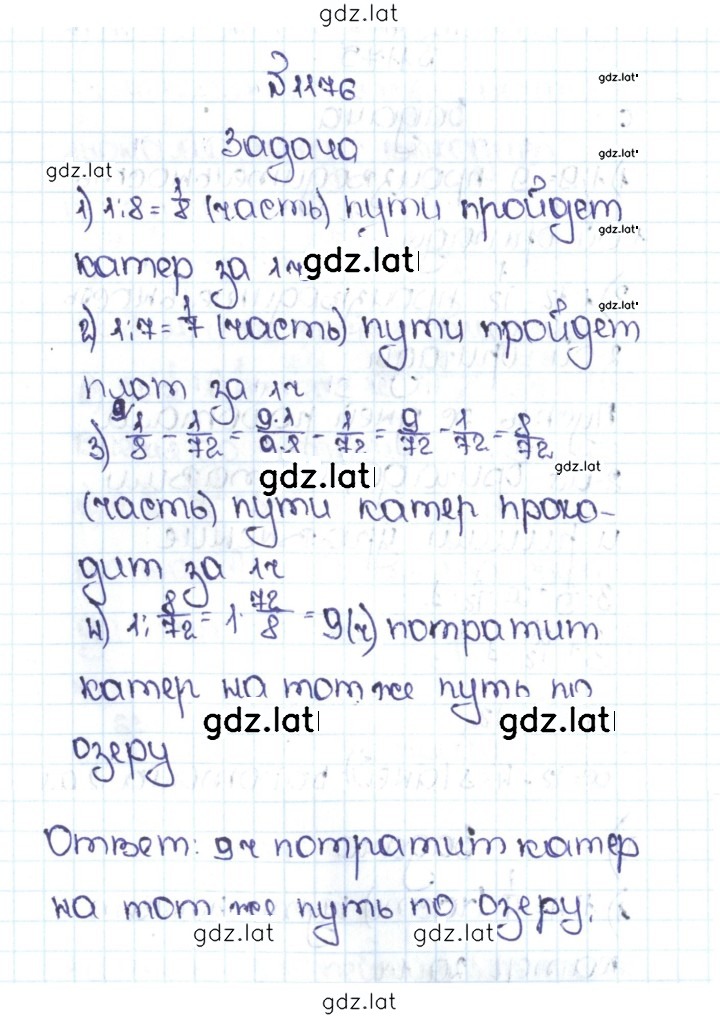 gdz.lat
№1176
gdz.lat
Задача
gdz.lat
gdz.lat
1) 1:8 = 1/8 (часть) пути пройдет
gdz.lat
катер за 1ч
gdz.lat
gdz.lat
2) 1:7 = 1/7 (часть) пути пройдет
плот за 1ч
3) 1/8 - 1/72 = 9·1/9·8 - 1/72 = 9/72 - 1/72 = 8/72
gdz.lat
gdz.lat
(часть) пути катер прохо-
дит за 1ч
4) 1: 8/72 = 1· 72/8 = 9(ч) потратит
катер на тот же путь по
gdz.lat gdz.lat
озеру
Ответ: 9ч потратит катер
на тот же путь по озеру.
gdz.lat gdz.lat
gdz.lat